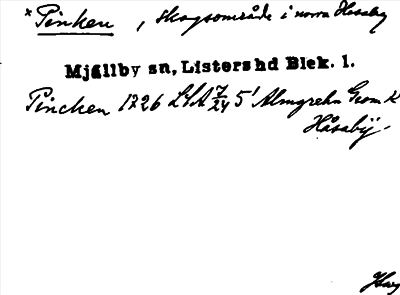 × Pinken, skogsområde i norra Håsaby
Mjällby sn, Listers hd Blek. l.
Pincken 1726 LSA 7/24 5¹ Almgrehn Geom K
Håsabÿ.